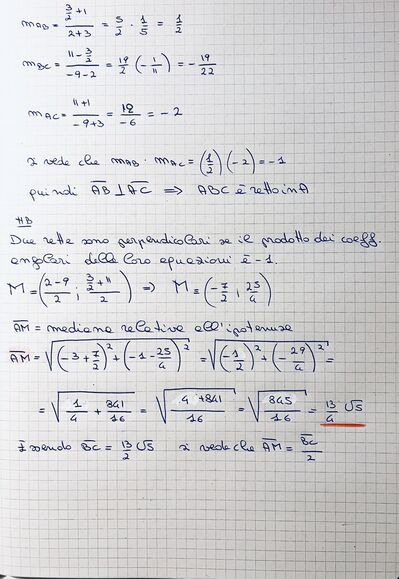 m_AB = (3/2 + 1)/(2+3) = 5/2 · 1/5 = 1/2
m_BC = (11 - 3/2)/(-9-2) = 19/2 (-1/11) = -19/22
m_AC = (11+1)/(-9+3) = 12/-6 = -2
si vede che m_AB · m_AC = (1/2)(-2) = -1
quindi AB ⊥ AC ⇒ ABC è retto in A
NB
Due rette sono perpendicolari se il prodotto dei coeff.
angolari delle loro equazioni è -1.
M = ((2-9)/2 ; (3/2 + 11)/2) ⇒ M = (-7/2 ; 25/4)
AM = mediana relativa all'ipotenusa
AM = √((-3 + 7/2)² + (-1 - 25/4)²) = √((-1/2)² + (-29/4)²) =
= √(1/4 + 841/16) = √((4 + 841)/16) = √(845/16) = 13/4 √5
Essendo BC = 13/2 √5 si vede che AM = BC/2